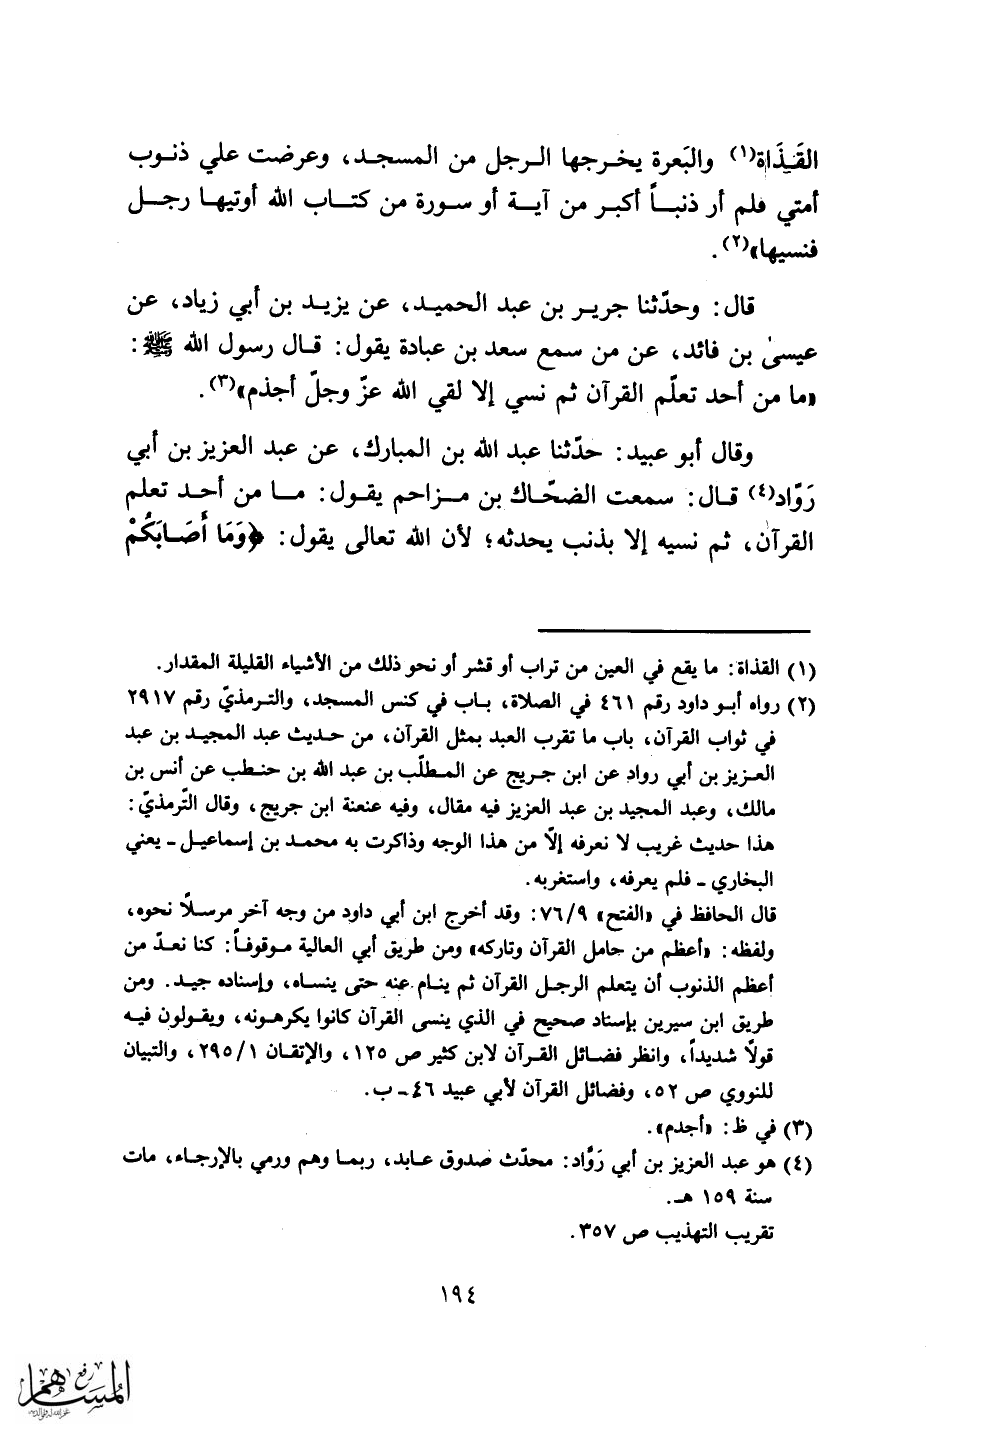 القَذَاة(١) والبَعرة يخرجها الرجل من المسجد، وعرضت علي ذنوب
أمتي فلم أر ذنباً أكبر من آية أو سورة من كتاب الله أوتيها رجل
فنسيها»(٢).
قال: وحدّثنا جرير بن عبد الحميد، عن يزيد بن أبي زياد، عن
عيسىٰ بن فائد، عن من سمع سعد بن عبادة يقول: قال رسول الله ﷺ:
«ما من أحد تعلّم القرآن ثم نسي إلا لقي الله عزّ وجلّ أجذم»(٣).
وقال أبو عبيد: حدّثنا عبد الله بن المبارك، عن عبد العزيز بن أبي
رَوَّاد(٤) قال: سمعت الضحّاك بن مزاحم يقول: ما من أحد تعلم
القرآن، ثم نسيه إلا بذنب يحدثه؛ لأن الله تعالى يقول: ﴿وَمَا أَصَابَكُمْ
(١) القذاة: ما يقع في العين من تراب أو قشر أو نحو ذلك من الأشياء القليلة المقدار.
(٢) رواه أبو داود رقم ٤٦١ في الصلاة، باب في كنس المسجد، والترمذيّ رقم ٢٩١٧
في ثواب القرآن، باب ما تقرب العبد بمثل القرآن، من حديث عبد المجيد بن عبد
العزيز بن أبي رواد عن ابن جريج عن المطلّب بن عبد الله بن حنطب عن أنس بن
مالك، وعبد المجيد بن عبد العزيز فيه مقال، وفيه عنعنة ابن جريج، وقال التّرمذيّ:
هذا حديث غريب لا نعرفه إلاّ من هذا الوجه وذاكرت به محمد بن إسماعيل ـ يعني
البخاري ـ فلم يعرفه، واستغربه.
قال الحافظ في «الفتح» ٧٦/٩: وقد أخرج ابن أبي داود من وجه آخر مرسلاً نحوه،
ولفظه: «أعظم من حامل القرآن وتاركه» ومن طريق أبي العالية موقوفاً: كنا نعدّ من
أعظم الذنوب أن يتعلم الرجل القرآن ثم ينام عنه حتى ينساه، وإسناده جيد. ومن
طريق ابن سيرين بإسناد صحيح في الذي ينسى القرآن كانوا يكرهونه، ويقولون فيه
قولاً شديداً، وانظر فضائل القرآن لابن كثير ص ١٢٥، والإتقان ٢٩٥/١، والتبيان
للنووي ص ٥٢، وفضائل القرآن لأبي عبيد ٤٦ ـ ب.
(٣) في ظ: «أجدم».
(٤) هو عبد العزيز بن أبي رَوَّاد: محدّث صدوق عابد، ربما وهم ورمي بالإرجاء، مات
سنة ١٥٩ هـ.
تقريب التهذيب ص ٣٥٧.
١٩٤
رفع
المساهم